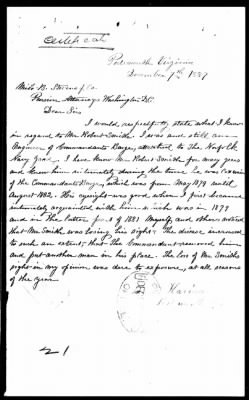 Certificate
Portsmouth Virginia
December 7th 1887
Milo B. Stevens & Co.
Pension Attorneys Washington D.C.
Dear Sirs
I would respectfully state what I know
in regard to Mr. Robert Smith. I was and still am
Engineer of Commandants Barge, attached to the Norfolk
Navy Yard. I have know Mr. Robert Smith for many years
and knew him intimately during the time he was Coxswain
of the Commandants Barge, which was from May 1879 until
August 1882. His eyesight was good when I first became
intimately acquainted with him which was in 1879
and in the latter part of 1881 Myself and others noticed
that Mr. Smith was losing his sight. The disease increased
to such an extent, that the Commandant removed him
and put another man in his place. The loss of Mr. Smiths
sight in my opinion was due to exposure, at all seasons
of the year.